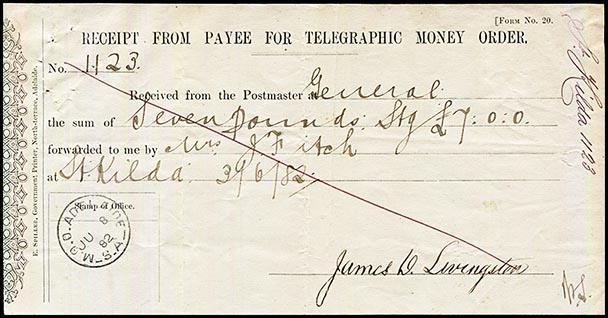 [FORM NO. 20.
RECEIPT FROM PAYEE FOR TELEGRAPHIC MONEY ORDER.
No. 1123
Received from the Postmaster at General
the sum of Seven Pounds Stg £7.0.0
forwarded to me by Mrs J Fitch
at St Kilda 3/6/82
Stamp of Office.
G.P.O. ADELAIDE
JU 8
82
S.A.
James D. Livingston
E. SPILLER, Government Printer, North-terrace, Adelaide.
St Kilda 1123